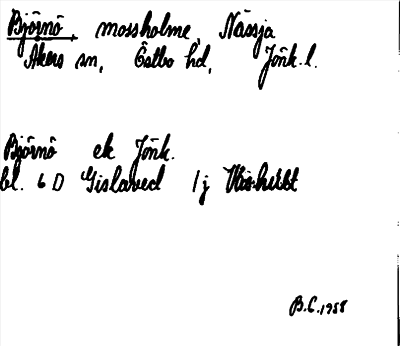 Björnö, mossholme, Nässja
Åkers sn, Östbo hd, Jönk. l.
Björnö ek Jönk.
bl. 6 D Gislaved 1 j
B.E. 1958